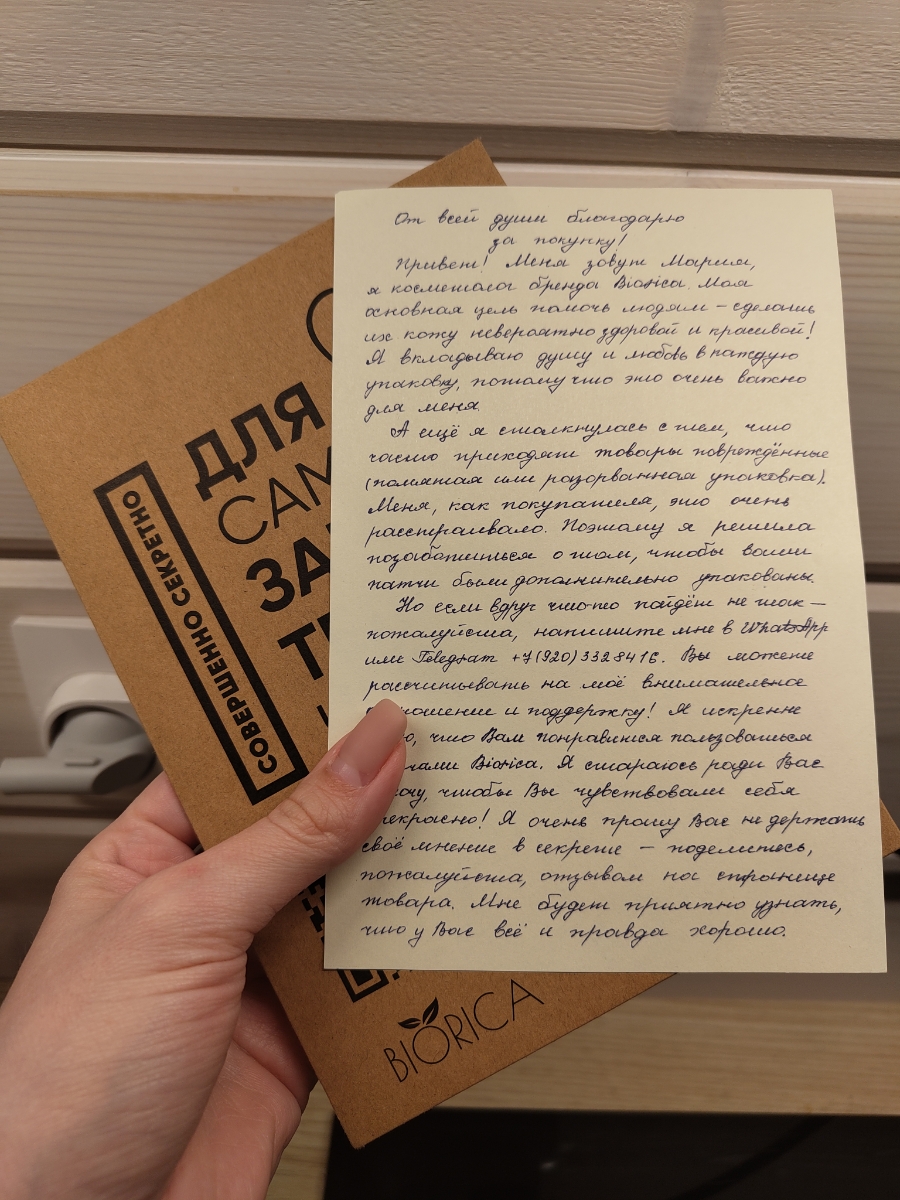 От всей души благодарю
за покупку!
Привет! Меня зовут Мария,
я косметолог бренда Biorica. Моя
основная цель помочь людям – сделать
их кожу невероятно здоровой и красивой!
Я вкладываю душу и любовь в каждую
упаковку, потому что это очень важно
для меня.
А ещё я столкнулась с тем, что
часто приходят товары повреждённые
(помятая или разорванная упаковка).
Меня, как покупателя, это очень
расстраивало. Поэтому я решила
позаботиться о том, чтобы ваши
патчи были дополнительно упакованы.
Но если вдруг что-то пойдёт не так –
пожалуйста, напишите мне в WhatsApp
или Telegram +7(920)3328416. Вы можете
рассчитывать на моё внимательное
отношение и поддержку! Я искренне
что Вам понравится пользоваться
Biorica. Я стараюсь ради Вас
чтобы Вы чувствовали себя
прекрасно! Я очень прошу Вас не держать
своё мнение в секрете – поделитесь,
пожалуйста, отзывом на странице
товара. Мне будет приятно узнать,
что у Вас всё и правда хорошо.
ДЛЯ
САМ
ЗА
СОВЕРШЕННО СЕКРЕТНО
BIORICA